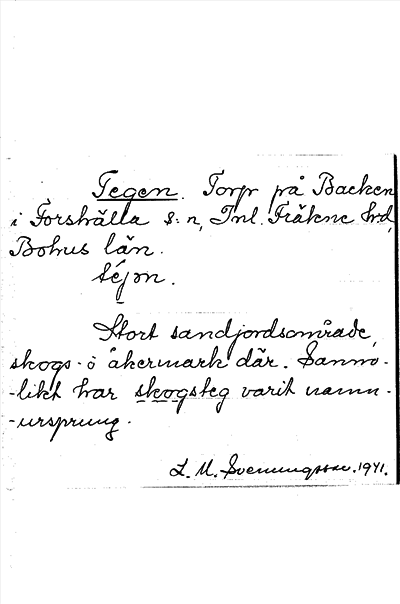 Tegen. Torp på Backen
i Forshälla s:n, Inl. Fräkne hrd,
Bohus län.
téjon.
Stort sandjordsområde,
skogs- o åkermark där. Sanno-
-likt har skogsteg varit namn-
-ursprung.
L. M. Svenungsson. 1941.